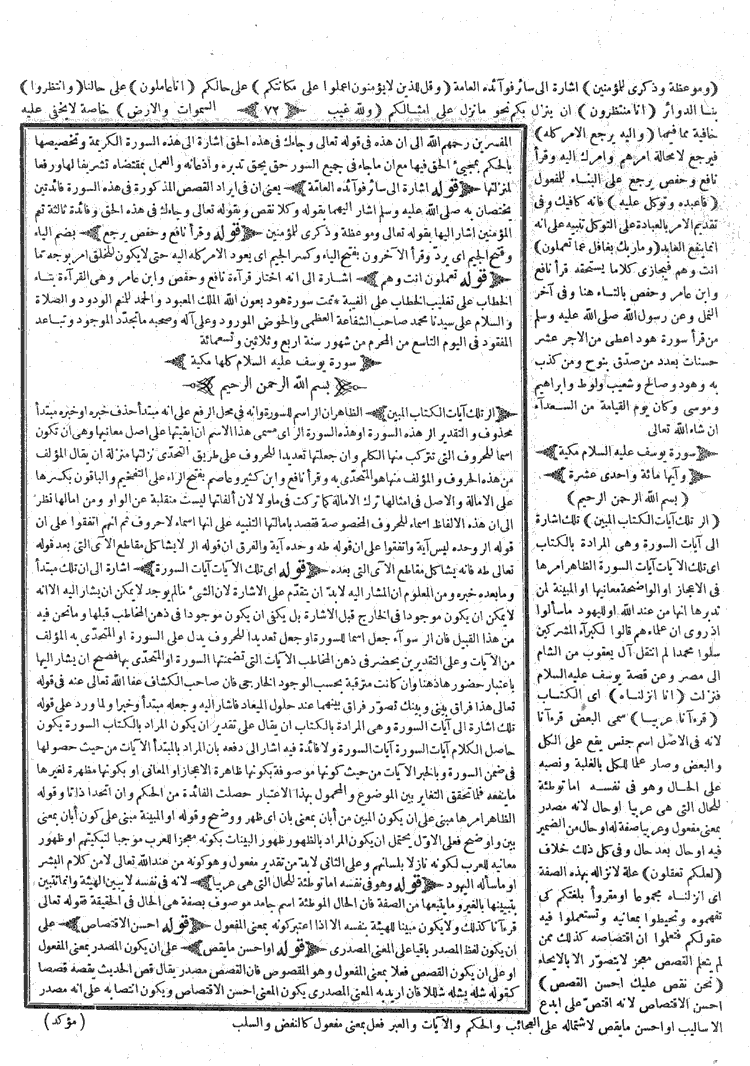 (وموعظة وذكرى للمؤمنين) اشارة الى سائر فوآئده العامة (وقل للذين لا يؤمنون اعملوا على مكانتكم) على حالكم (اناعاملون) على حالنا (وانتظروا)
بنا الدوائر (انا منتظرون) ان ينزل بكم نحو ما نزل على امثالكم (ولله غيب ﴿ ٧٢ ﴾ السموات والارض) خاصة لا يخفى عليه
خافية مما فيهما (واليه يرجع الامر كله)
فيرجع لا محالة امرهم وامرك اليه وقرأ
نافع وحفص يرجع على البناء للمفعول
(فاعبده وتوكل عليه) فانه كافيك وفى
تقديم الامر بالعبادة على التوكل تنبيه على انه
انما ينفع العابد (وما ربك بغافل عما تعملون)
انت وهم فيجازى كلا ما يستحقه قرأ نافع
وابن عامر وحفص بالتاء هنا وفى آخر
النمل وعن رسول الله صلى الله عليه وسلم
من قرأ سورة هود اعطى من الاجر عشر
حسنات بعدد من صدق بنوح ومن كذب
به وهود وصالح وشعيب ولوط وابراهيم
وموسى وكان يوم القيامة من السعدآء
ان شاء الله تعالى
﴿ سورة يوسف عليه السلام مكية ﴾
﴿ وآيها مائة واحدى عشرة ﴾
(بسم الله الرحمن الرحيم)
(الر تلك آيات الكتاب المبين) تلك اشارة
الى آيات السورة وهى المرادة بالكتاب
اى تلك الآيات آيات السورة الظاهر امرها
فى الاعجاز او الواضحة معانيها او المبينة لمن
تدبرها انها من عند الله او لليهود ما سألوا
اذ روى ان علماءهم قالوا لكبرآء المشركين
سلوا محمدا لم انتقل آل يعقوب من الشام
الى مصر وعن قصة يوسف عليه السلام
فنزلت (انا انزلناه) اى الكتاب
(قرءآنا عربيا) سمى البعض قرءآنا
لانه فى الاصل اسم جنس يقع على الكل
والبعض وصار علما للكل بالغلبة ونصبه
على الحال وهو فى نفسه اما توطئة
للحال التى هى عربيا او حال لانه مصدر
بمعنى مفعول وعربيا صفة له او حال من الضمير
فيه او حال بعد حال وفى كل ذلك خلاف
(لعلكم تعقلون) علة لانزاله بهذه الصفة
اى انزلناه مجموعا او مقروأ بلغتكم كى
تفهموه وتحيطوا بمعانيه وتستعملوا فيه
عقولكم فتعلموا ان اقتصاصه كذلك ممن
لم يتعلم القصص معجز لا يتصور الا بالايحاء
(نحن نقص عليك احسن القصص)
احسن الاقتصاص لانه اقتص على ابدع
الاساليب او احسن ما يقص لاشتماله على العجائب والحكم والآيات والعبر فعل بمعنى مفعول كالنقض والسلب
المفسرين رحمهم الله الى ان هذه فى قوله تعالى وجاءك فى هذه الحق اشارة الى هذه السورة الكريمة وتخصيصها
بالحكم بمجيئ الحق فيها مع ان ما جاء فى جميع السور حق يحق تدبره واذعانه والعمل بمقتضاه تشريفا لها ورفعا
لمنزلتها ﴿ قوله اشارة الى سائر فوآئده العامة ﴾ يعنى ان فى ايراد القصص المذكورة فى هذه السورة فائدتين
يختصان به صلى الله عليه وسلم اشار اليهما بقوله وكلا نقص وبقوله تعالى وجاءك فى هذه الحق وفائدة ثالثة تعم
المؤمنين اشار اليها بقوله تعالى وموعظة وذكرى للمؤمنين ﴿ قوله وقرأ نافع وحفص يرجع ﴾ بضم الياء
وفتح الجيم اى يرد وقرأ الآخرون بفتح الياء وكسر الجيم اى يعود الامر كله اليه حتى لا يكون للخلق امر بوجه مما
﴿ قوله تعملون انت وهم ﴾ اشارة الى انه اختار قرآءة نافع وحفص وابن عامر وهى القرآءة بتاء
الخطاب على تغليب الخطاب على الغيبة * تمت سورة هود بعون الله الملك المعبود والحمد للمنعم الودود والصلاة
والسلام على سيدنا محمد صاحب الشفاعة العظمى والحوض المورود وعلى آله وصحبه ما تجدد الموجود وتباعد
المفقود فى اليوم التاسع من المحرم من شهور سنة اربع وثلاثين وتسعمائة
﴿ سورة يوسف عليه السلام كلها مكية ﴾
﴿ بسم الله الرحمن الرحيم ﴾
﴿ الر تلك آيات الكتاب المبين ﴾ الظاهر ان الر اسم للسورة وانه فى محل الرفع على انه مبتدأ حذف خبره او خبره مبتدأ
محذوف والتقدير الر هذه السورة او هذه السورة الر اى مسمى هذا الاسم ان ابقيتها على اصل معانيها وهى ان تكون
اسما للحروف التى تتركب منها الكلم وان جعلتها تعديدا للحروف على طريق التحدى نزلتها منزلة ان يقال المؤلف
من هذه الحروف والمؤلف منها هو المتحدى به وقرأ نافع وابن كثير وعاصم بفتح الرآء على التفخيم والباقون بكسرها
على الامالة والاصل فى امثالها ترك الامالة كما تركت فى ما ولا لان ألفاتها ليست منقلبة عن الواو ومن امالها نظر
الى ان هذه الالفاظ اسماء للحروف المخصوصة فقصد بامالتها التنبيه على انها اسماء لا حروف ثم انهم اتفقوا على ان
قوله الر وحده ليس آية واتفقوا على ان قوله طه وحده آية والفرق ان قوله الر لا يشاكل مقاطع الآى التى بعد قوله
تعالى طه فانه يشاكل مقاطع الآى التى بعده ﴿ قوله اى تلك الآيات آيات السورة ﴾ اشارة الى ان تلك مبتدأ
وما بعده خبره ومن المعلوم ان المشار اليه لابد ان يتقدم على الاشارة لان الشئ مالم يوجد لا يمكن ان يشار اليه الا انه
لا يمكن ان يكون موجودا فى الخارج قبل الاشارة بل يكفى ان يكون موجودا فى ذهن المخاطب قبلها وما نحن فيه
من هذا القبيل فان الر سوآء جعل اسما للسورة او جعل تعديدا للحروف يدل على السورة او المتحدى به المؤلف
من الآيات وعلى التقديرين يحضر فى ذهن المخاطب الآيات التى تضمنتها السورة او المتحدى بها فصح ان يشار اليها
باعتبار حضورها ذهنا وان كانت مترقبة بحسب الوجود الخارجى فان صاحب الكشاف عفا الله تعالى عنه فى قوله
تعالى هذا فراق بينى وبينك تصور فراق بينهما عند حلول الميعاد فاشار اليه وجعله مبتدأ وخبرا ولما ورد على قوله
تلك اشارة الى آيات السورة وهى المرادة بالكتاب ان يقال على تقدير ان يكون المراد بالكتاب السورة يكون
حاصل الكلام آيات السورة آيات السورة ولا فائدة فيه اشار الى دفعه بان المراد بالمبتدأ الآيات من حيث حصولها
فى ضمن السورة وبالخبر الآيات من حيث كونها موصوفة بكونها ظاهرة الاعجاز او المعانى او بكونها مظهرة لغيرها
ما ينفعه فلما تحقق التغاير بين الموضوع والمحمول بهذا الاعتبار حصلت الفائدة من الحكم وان اتحدا ذاتا وقوله
الظاهر امرها مبنى على ان يكون المبين من أبان بمعنى بان اى ظهر ووضح وقوله او المبينة مبنى على كون أبان بمعنى
بين واوضح فعلى الاول يحتمل ان يكون المراد بالظهور ظهور البينات بكونه معجزا للعرب موجبا لتبكيتهم او ظهور
معانيه للعرب لكونه نازلا بلسانهم وعلى الثانى لابد من تقدير مفعول وهو كونه من عند الله تعالى لا من كلام البشر
او ما سأله اليهود ﴿ قوله وهو فى نفسه اما توطئة للحال التى هى عربيا ﴾ لانه فى نفسه لا يبين الهيئة وانما تتبين
بتبيينها بالغير وما يتبعها من الصفة فان الحال الموطئة اسم جامد موصوف بصفة هى الحال فى الحقيقة وقوله تعالى
قرءآنا كذلك ولا يكون مبينا للهيئة بنفسه الا اذا اعتبر كونه بمعنى المفعول ﴿ قوله احسن الاقتصاص ﴾ على
ان يكون لفظ المصدر باقيا على المعنى المصدرى ﴿ قوله او احسن ما يقص ﴾ على ان يكون المصدر بمعنى المفعول
او على ان يكون القصص فعلا بمعنى المفعول وهو المقصوص فان القصص مصدر يقال قص الحديث يقصه قصصا
كقوله شله يشله شللا فان اريد به المعنى المصدرى يكون المعنى احسن الاقتصاص ويكون انتصابه على انه مصدر
(مؤكد)